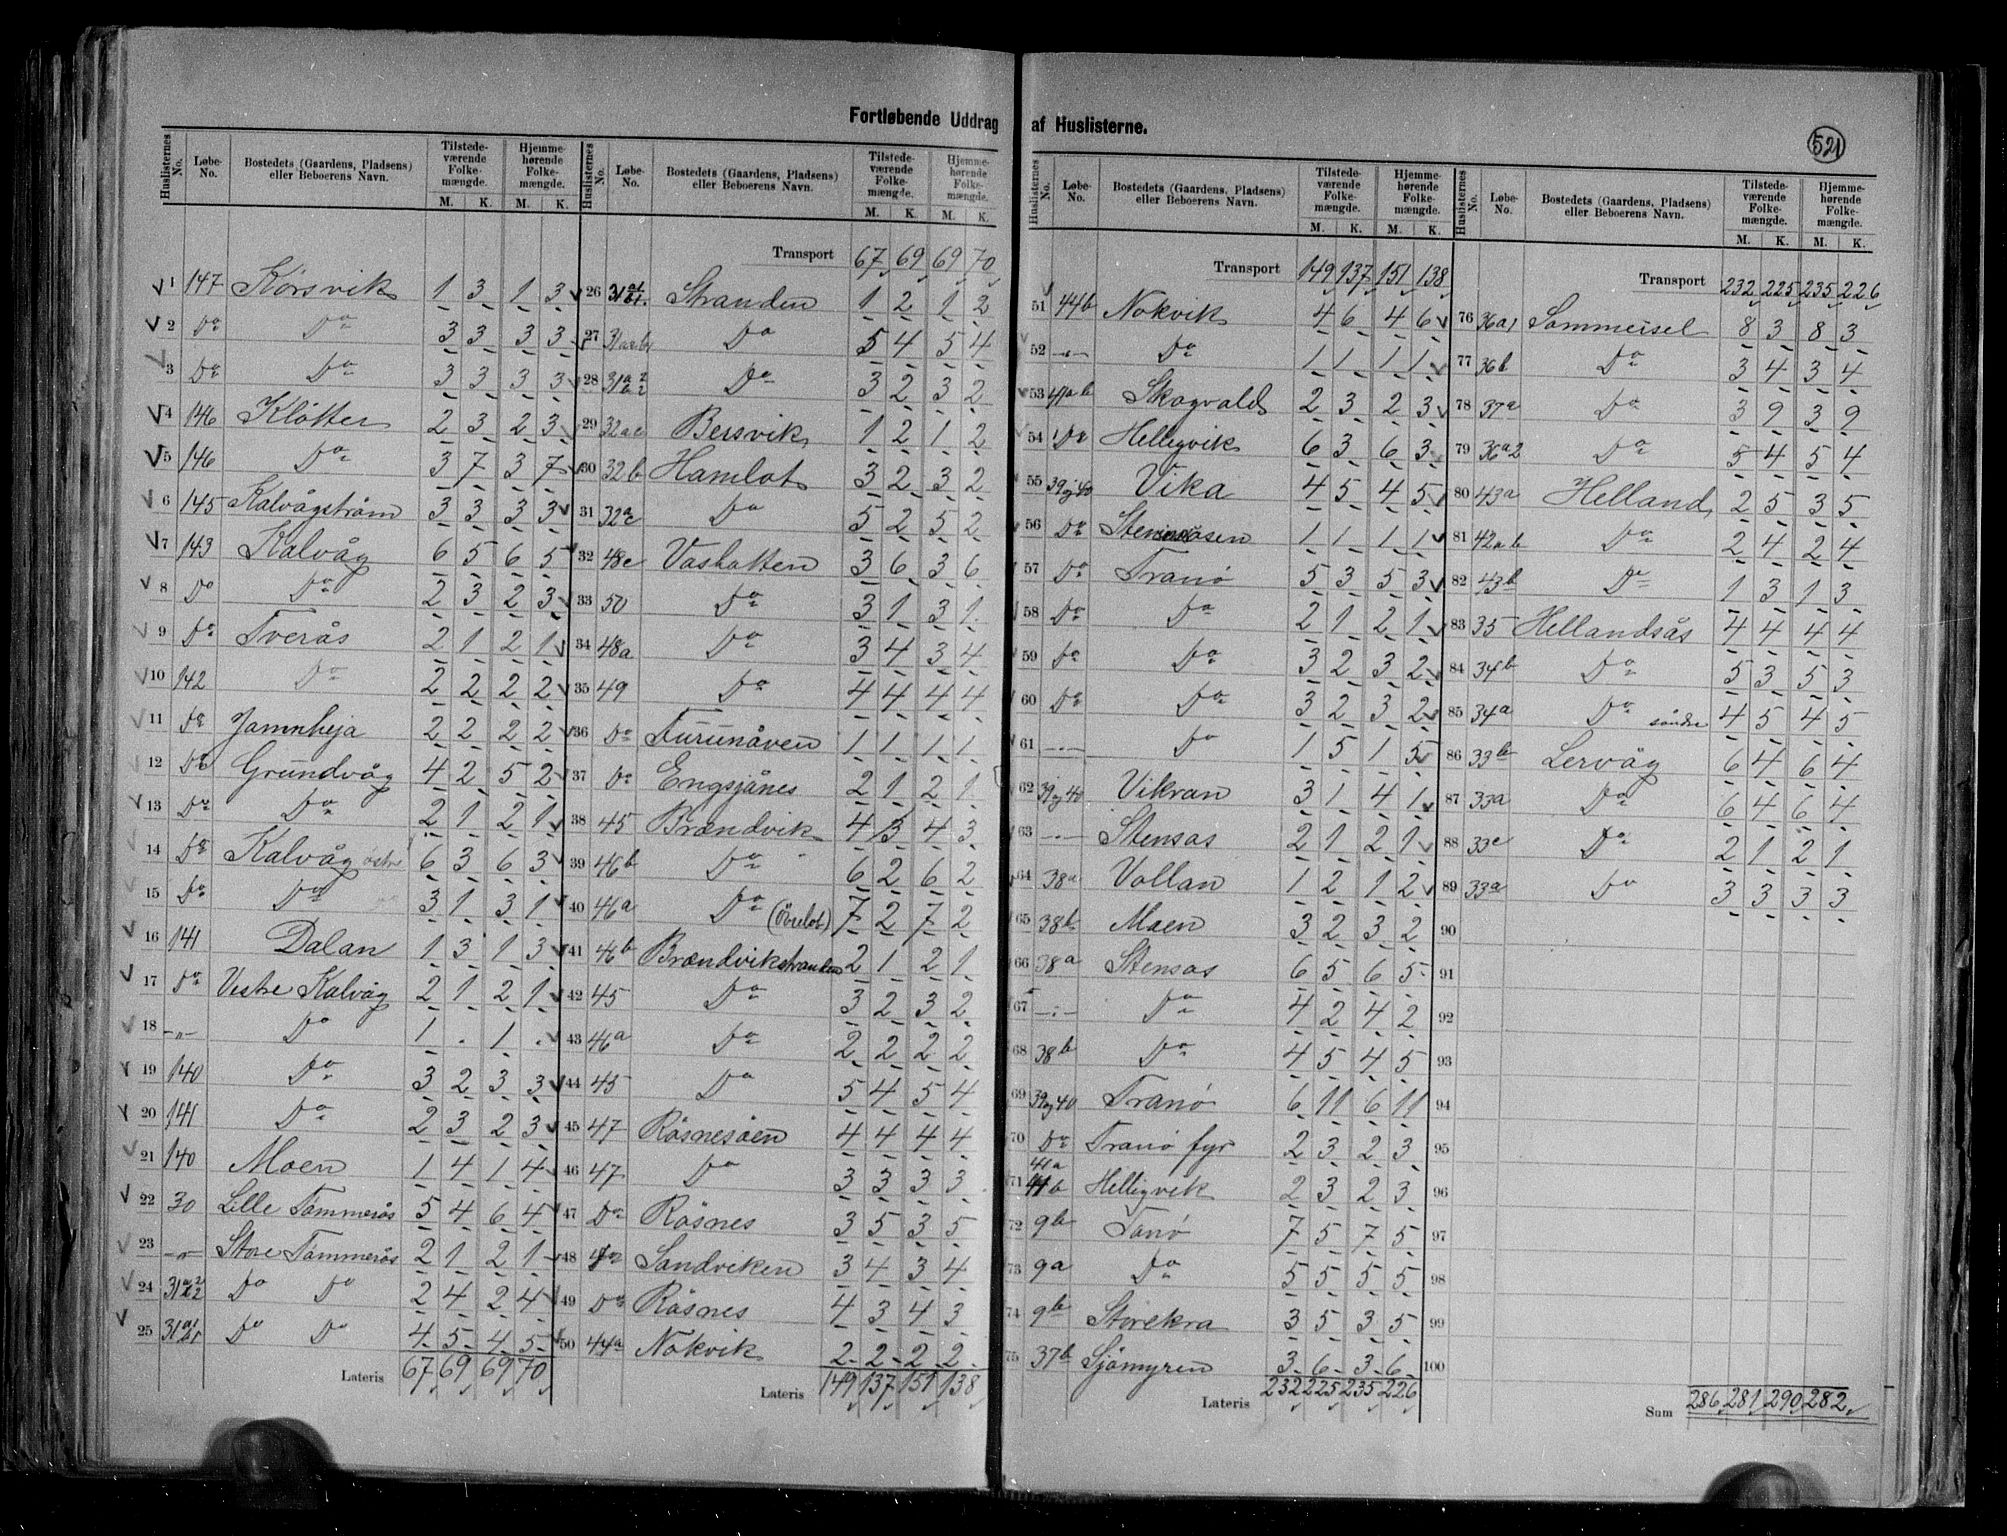 Fortløbende Uddrag af Huslisterne.
521
Huslisternes No. Løbe-No. Bostedets (Gaardens, Pladsens) eller Beboerens Navn. Tilstedeværende Folkemængde. M. K. Hjemmehørende Folkemængde. M. K.
1 147 Korsvik 1 3 1 3
2 Do Do 3 3 3 3
3 Do Do 3 3 3 3
4 146 Kløtten 2 3 2 3
5 146 Do 3 7 3 7
6 145 Kalvågstrøm 3 3 3 3
7 143 Kalvåg 6 5 6 5
8 Do Do 2 3 2 3
9 Do Tverås 2 1 2 1
10 142 Do 2 2 2 2
11 Do Jamnheja 2 2 2 2
12 Do Grundvåg 4 2 5 2
13 Do Do 2 1 2 1
14 Do Kalvåg østre 6 3 6 3
15 Do Do 3 1 3 1
16 141 Dalan 1 3 1 3
17 Do Vestre Kalvåg 2 1 2 1
18 -"- Do 1 . 1 .
19 140 Do 3 2 3 3
20 141 Do 2 3 2 3
21 140 Moen 1 4 1 4
22 30 Lille Tømmerås 5 4 6 4
23 -"- Store Tømmerås 2 1 2 1
24 31a2 b2 Do Do 2 4 2 4
25 31a1 b1 Do Do 4 5 4 5
Lateris 67 69 69 70
Huslisternes No. Løbe-No. Bostedets (Gaardens, Pladsens) eller Beboerens Navn. Tilstedeværende Folkemængde. M. K. Hjemmehørende Folkemængde. M. K.
Transport 67 69 69 70
26 31a1 b1. Stranden 1 2 1 2
27 Do 5 4 5 4
28 31a2 b2 Do 3 2 3 2
29 32ac Bersvik 1 2 1 2
30 32b Hamlot 3 2 3 2
31 32ac Do 5 2 5 2
32 48c Vashatten 3 6 3 6
33 50 Do 3 1 3 1
34 48a Do 3 4 3 4
35 49 Do 4 4 4 4
36 Do Furunåven 1 1 1 1
37 Do Engsjånes 2 1 2 1
38 45 Brændvik 4 3 4 3
39 46b Do 6 2 6 2
40 46a Do (Øvrelot) 7 2 7 2
41 46b Brændvikstranden 2 1 2 1
42 45 Do 3 2 3 2
43 46a Do 2 2 2 2
44 45 Do 5 4 5 4
45 47 Røsnesøen 4 4 4 4
46 47 Do 3 3 3 3
47 Do Røsnes 3 5 3 5
48 Do Sandviken 3 4 3 4
49 Do Røsnes 4 3 4 3
50 44a Nøkvik 2 2 2 2
Lateris 149 137 151 138
Huslisternes No. Løbe-No. Bostedets (Gaardens, Pladsens) eller Beboerens Navn. Tilstedeværende Folkemængde. M. K. Hjemmehørende Folkemængde. M. K.
Transport 149 137 151 138
51 44b Nøkvik 4 6 4 6
52 -"- Do 1 1 1 1
53 41ab Skogvold 2 3 2 3
54 Do Helligvik 6 3 6 3
55 39 og 40 Vika 4 5 4 5
56 Do 1 1 1 1
57 Do Tranø 5 3 5 3
58 Do Do 2 1 2 1
59 Do Do 3 2 3 2
60 Do Do 3 2 3 2
61 -"- Do 1 5 1 5
62 39 og 40 Vikran 3 1 4 1
63 -"- Stensas 2 1 2 1
64 38a Vollan 1 2 1 2
65 38b Moen 3 2 3 2
66 38a Stensas 6 5 6 5
67 -"- Do 4 2 4 2
68 38b Do 4 5 4 5
69 39 og 40 Tranø 6 11 6 11
70 Do Tranø fyr 2 3 2 3
71 41a 41b Helligvik 2 3 2 3
72 9b Tanø 7 5 7 5
73 9a Do 5 5 5 5
74 9b Storekra 3 5 3 5
75 37b Sjømyren 3 6 3 6
Lateris 232 225 235 226
Huslisternes No. Løbe-No. Bostedets (Gaardens, Pladsens) eller Beboerens Navn. Tilstedeværende Folkemængde. M. K. Hjemmehørende Folkemængde. M. K.
Transport 232 225 235 226
76 36a1 Sommersel 8 3 8 3
77 36b Do 3 4 3 4
78 37a Do 3 9 3 9
79 36a2 Do 5 4 5 4
80 43a Helland 2 5 3 5
81 42ab Do 2 4 2 4
82 43b Do 1 3 1 3
83 35 Hellandsås 4 4 4 4
84 34b Do 5 3 5 3
85 34a Do søndre 4 5 4 5
86 33b Lervåg 6 4 6 4
87 33a Do 6 4 6 4
88 33c Do 2 1 2 1
89 33a Do 3 3 3 3
90
91
92
93
94
95
96
97
98
99
100
Sum 286 281 290 282